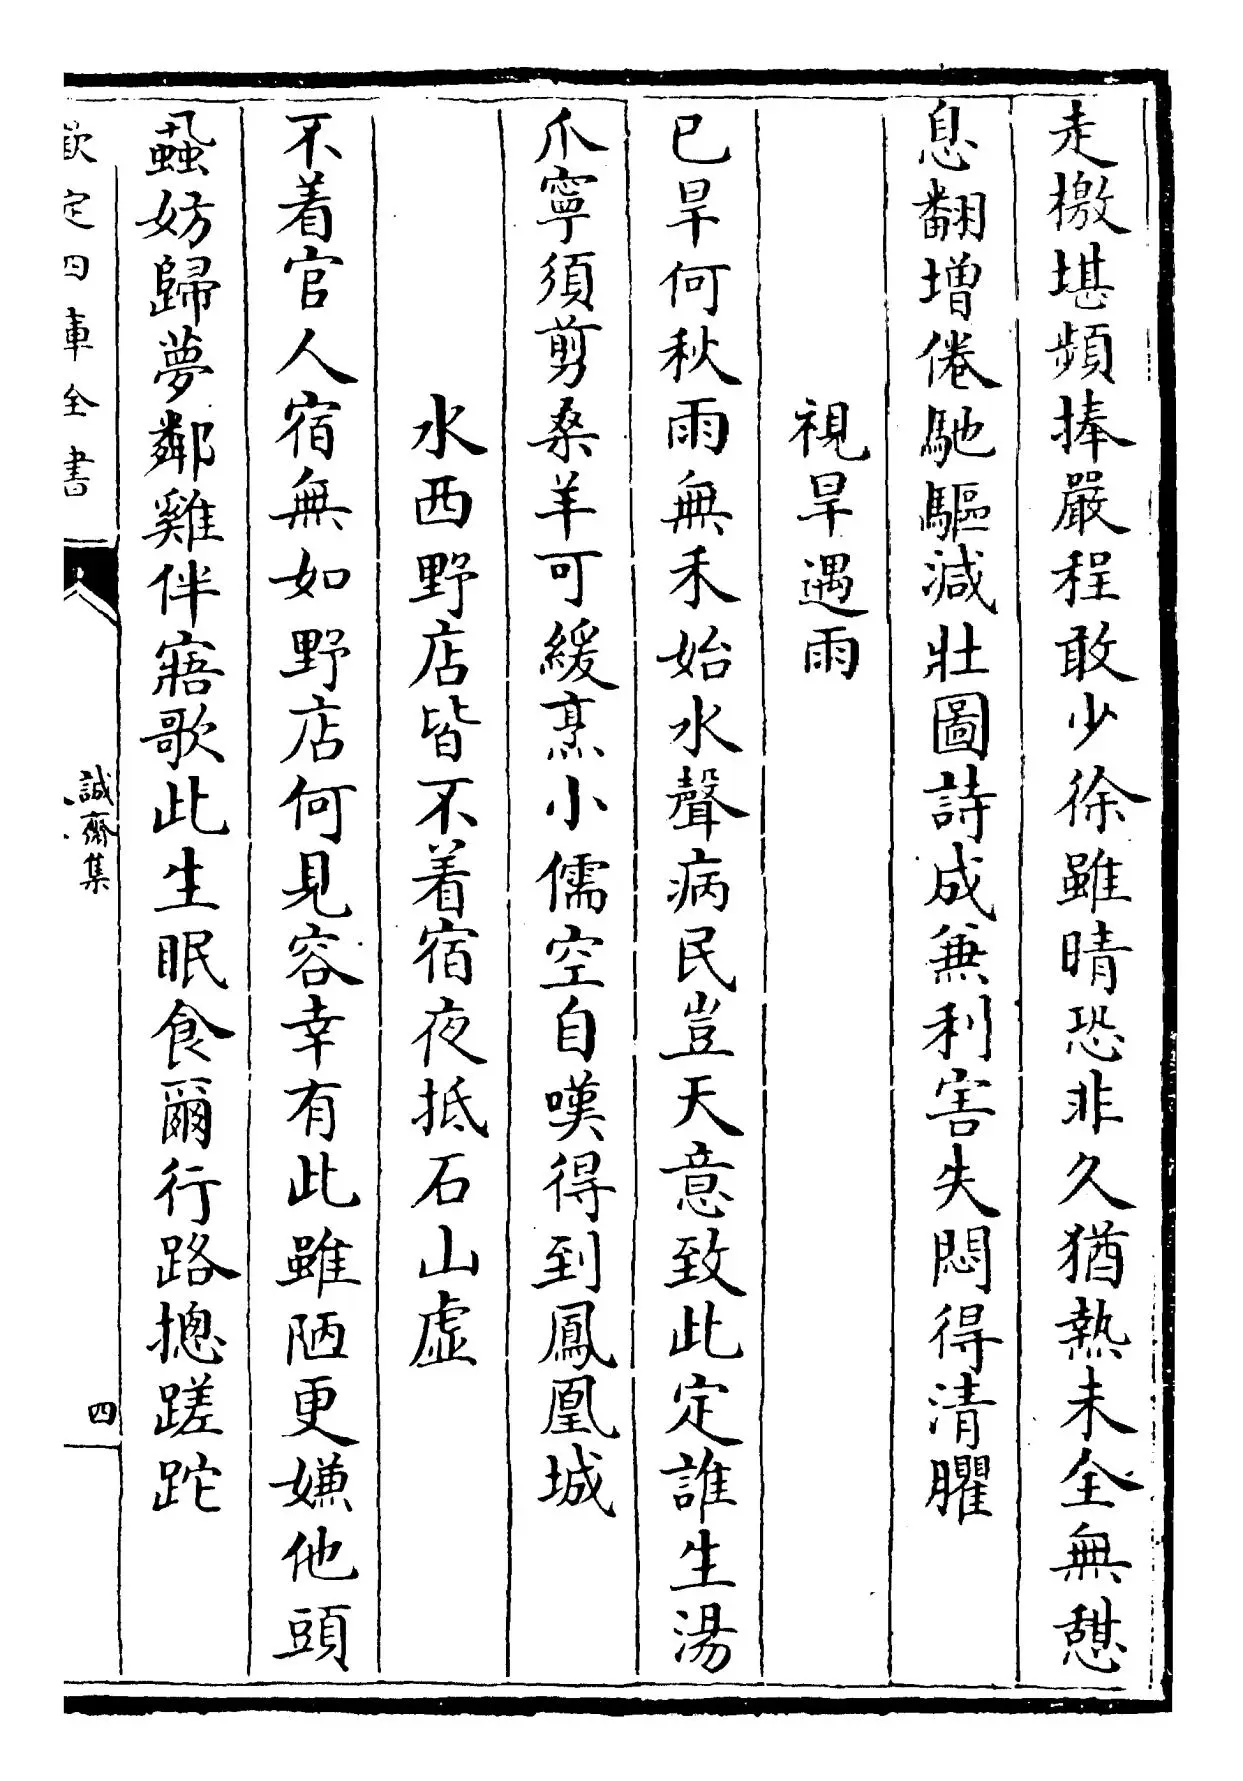 走檄堪頻捧嚴程敢少徐雖晴恐非久猶熱未全無憇
息翻增倦馳驅減壯圖詩成兼利害失悶得清臞
視旱遇雨
已旱何秋雨無禾始水聲病民豈天意致此定誰生湯
爪寧須剪桑羊可緩烹小儒空自嘆得到鳳凰城
水西野店皆不着宿夜抵石山虛
不着官人宿無如野店何見容幸有此雖陋更嫌他頭
蝨妨歸夢鄰雞伴寤歌此生眠食爾行路摠蹉跎
欽定四庫全書
誠齋集
四